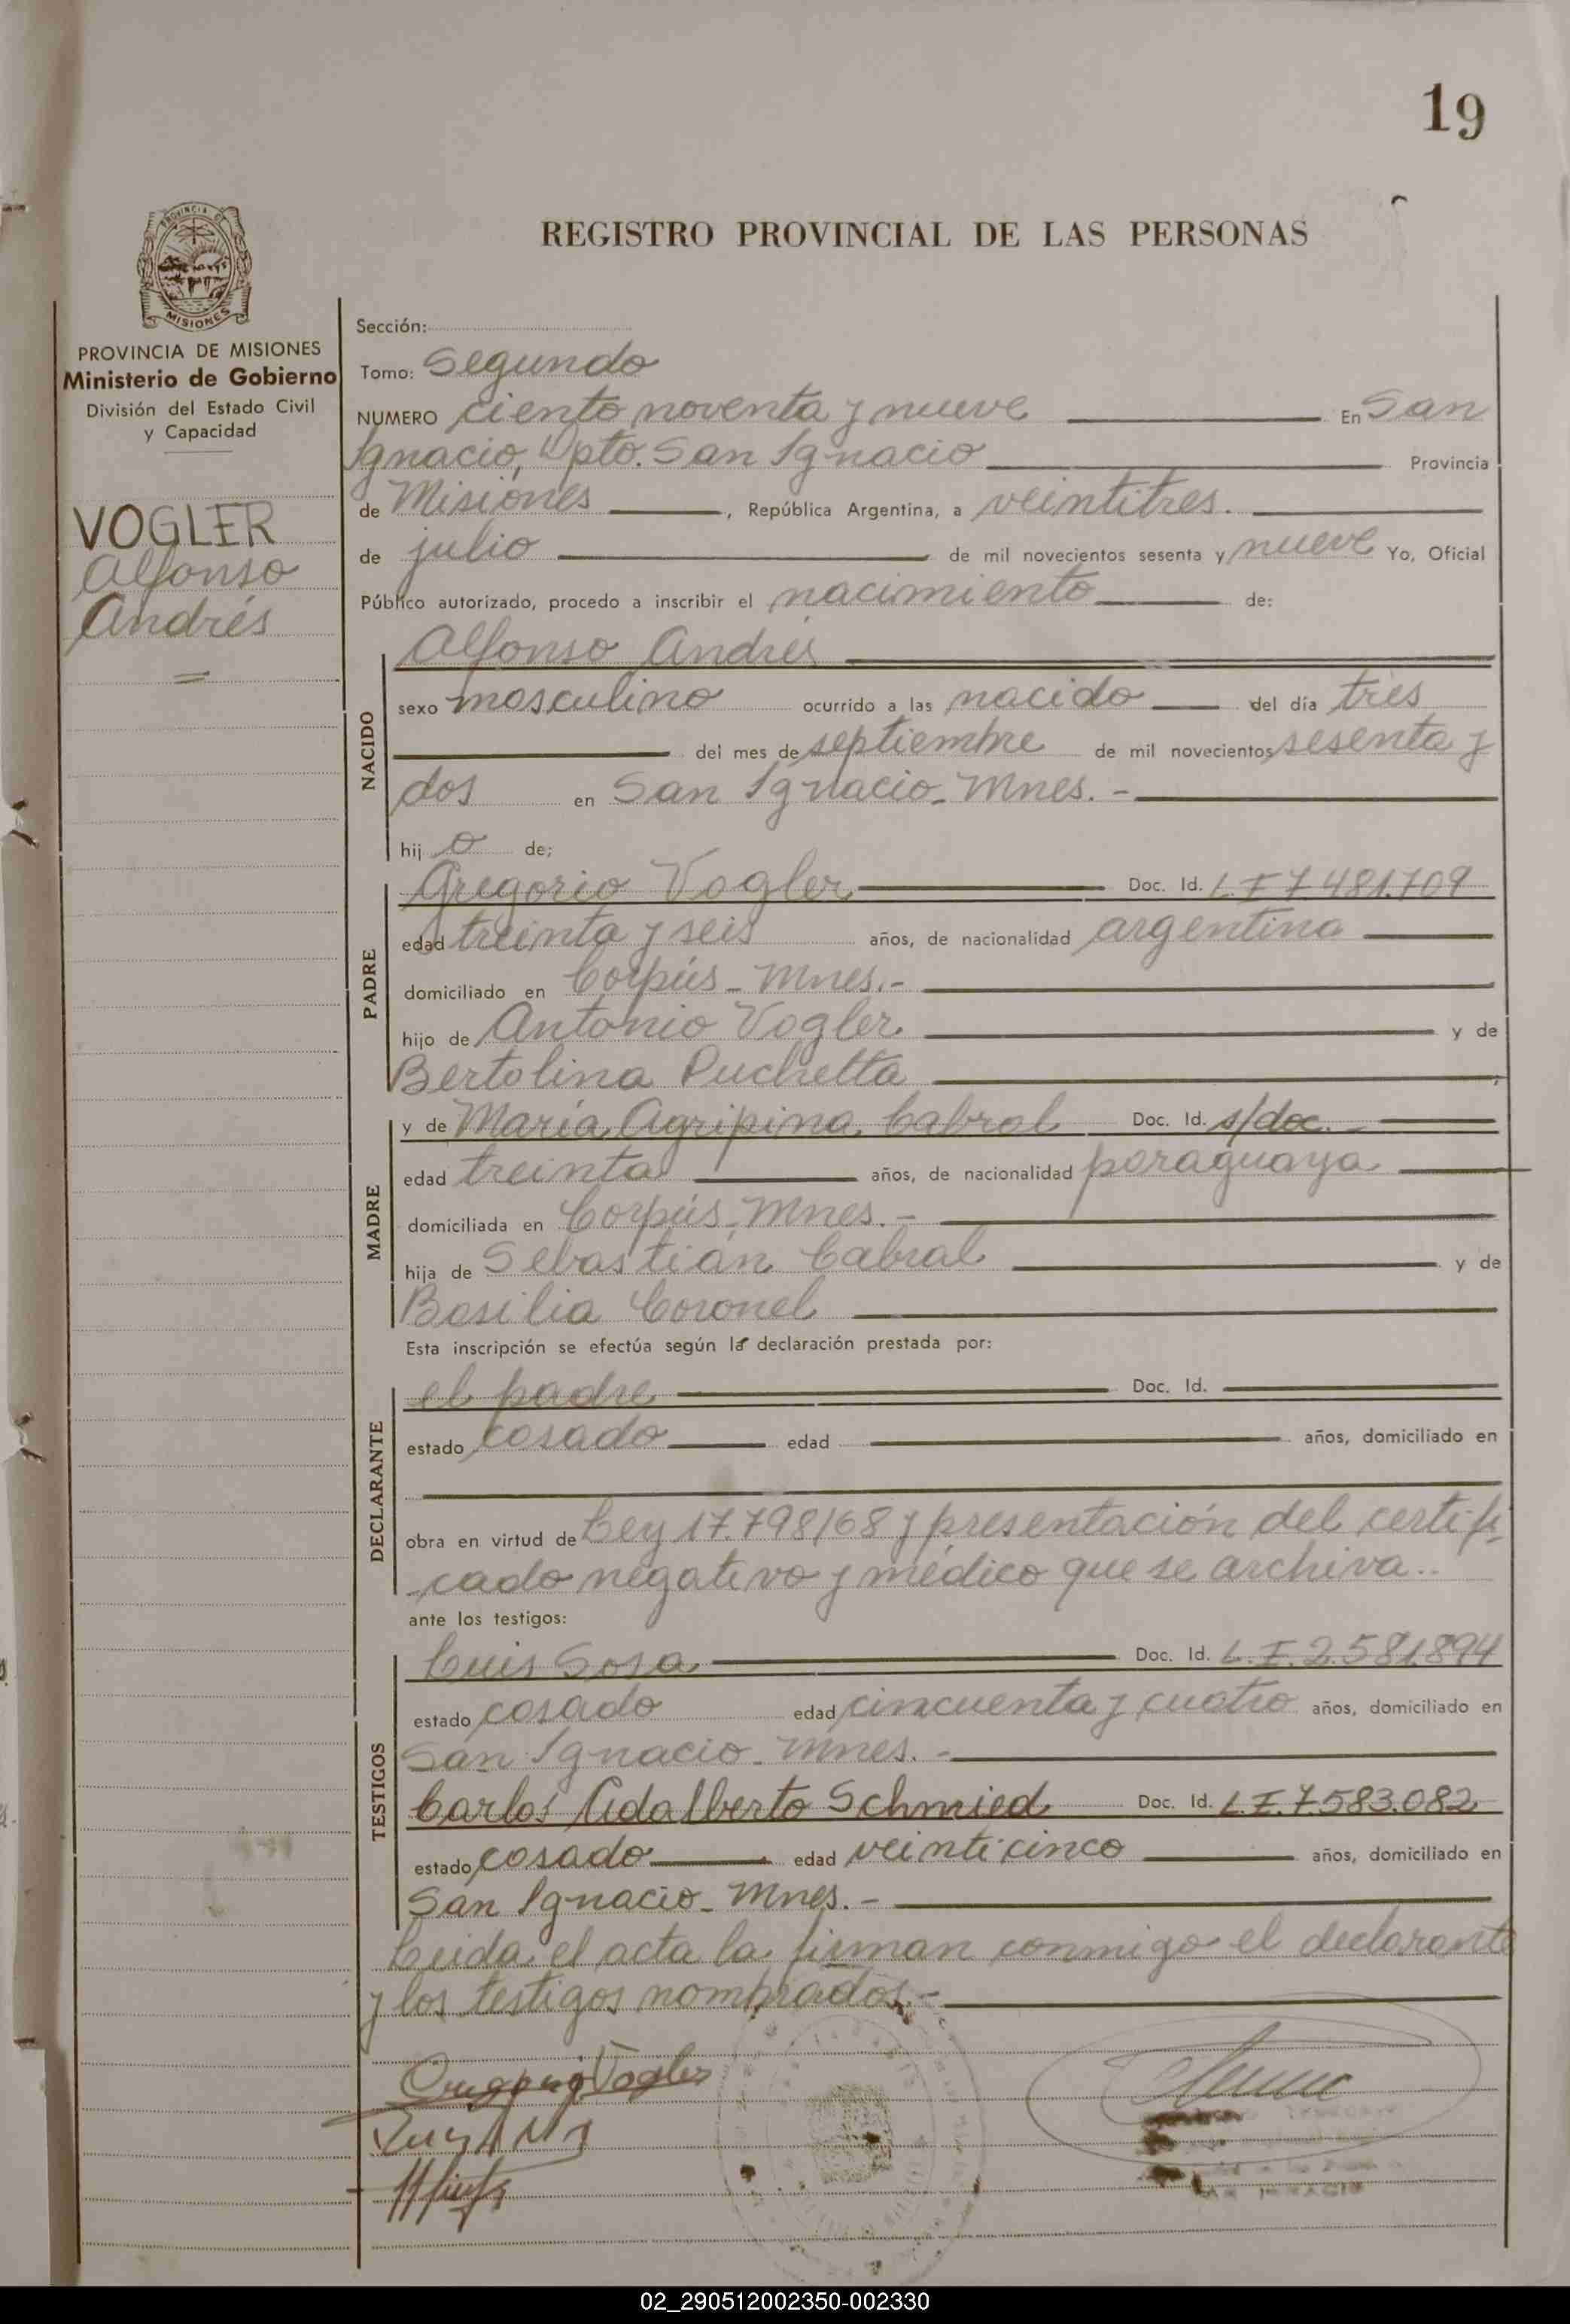 19
REGISTRO PROVINCIAL DE LAS PERSONAS
PROVINCIA DE
MISIONES
PROVINCIA DE MISIONES
Ministerio de Gobierno
División del Estado Civil
y Capacidad
VOGLER
Alfonso
Andrés
Sección:
Tomo: Segundo
NUMERO ciento noventa y nueve En San
Ignacio, Dpto. San Ignacio Provincia
de Misiones, República Argentina, a veintitres.
de julio de mil novecientos sesenta y nueve Yo, Oficial
Público autorizado, procedo a inscribir el nacimiento de:
Alfonso Andrés
NACIDO
sexo masculino ocurrido a las nacido del día tres
del mes de septiembre de mil novecientos sesenta y
dos en San Ignacio - Mnes. -
hijo de;
PADRE
Gregorio Vogler Doc. Id. L.E 7.481.709
edad treinta y seis años, de nacionalidad argentina
domiciliado en Corpús - Mnes. -
hijo de Antonio Vogler y de
Bertolina Puchetta
MADRE
y de María Agripina Cabral Doc. Id. s/doc. -
edad treinta años, de nacionalidad paraguaya
domiciliada en Corpús - Mnes. -
hija de Sebastián Cabral y de
Basilia Coronel
Esta inscripción se efectúa según la declaración prestada por:
DECLARANTE
el padre Doc. Id.
estado casado edad años, domiciliado en
obra en virtud de Ley 17.798/68 y presentación del certifi
cado negativo y médico que se archiva..
ante los testigos:
TESTIGOS
Luis Sosa Doc. Id. L.E. 2.581.894
estado casado edad cincuenta y cuatro años, domiciliado en
San Ignacio - Mnes. -
Carlos Adalberto Schmied Doc. Id. L.E. 7.583.082
estado casado edad veinticinco años, domiciliado en
San Ignacio - Mnes. -
Leida el acta la firman conmigo el declarante
y los testigos nombrados. -
Gregorio Vogler
02_290512002350-002330